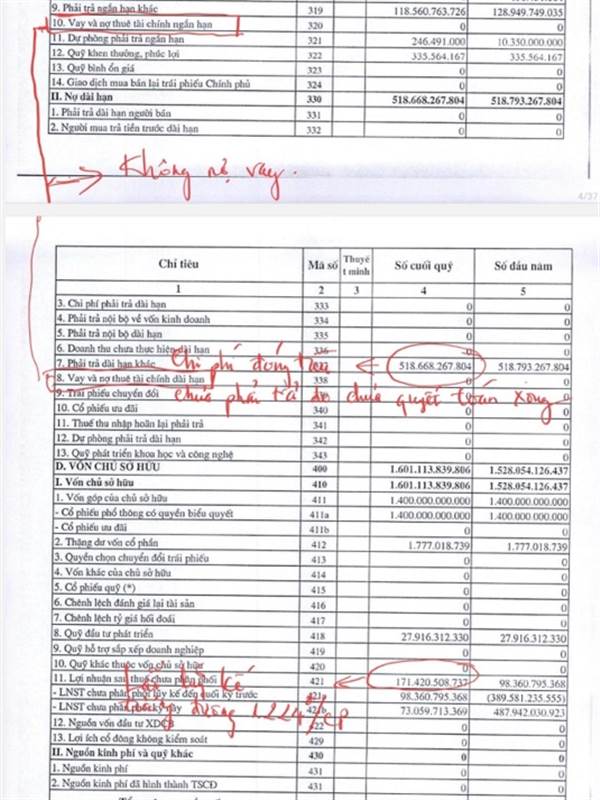 9. Phải trả ngắn hạn khác 319 118.560.763.726 128.949.749.035
10. Vay và nợ thuê tài chính ngắn hạn 320 0 0
11. Dự phòng phải trả ngắn hạn 321 246.491.000 10.350.000.000
12. Quỹ khen thưởng, phúc lợi 322 335.564.167 335.564.167
13. Quỹ bình ổn giá 323 0 0
14. Giao dịch mua bán lại trái phiếu Chính phủ 324 0 0
II. Nợ dài hạn 330 518.668.267.804 518.793.267.804
1. Phải trả dài hạn người bán 331 0 0
2. Người mua trả tiền trước dài hạn 332 0 0
Không nợ vay.
4/37
Chỉ tiêu Mã số Thuyế t minh Số cuối quý Số đầu năm
1 2 3 4 5
3. Chi phí phải trả dài hạn 333 0 0
4. Phải trả nội bộ về vốn kinh doanh 334 0 0
5. Phải trả nội bộ dài hạn 335 0 0
6. Doanh thu chưa thực hiện dài hạn 336 0 0
Chi phí đóng tàu
7. Phải trả dài hạn khác 518.668.267.804 518.793.267.804
8. Vay và nợ thuê tài chính dài hạn 338 0 0
9. Trái phiếu chuyển đổi 0
chưa phải trả do chưa quyết toán xong
10. Cổ phiếu ưu đãi 340 0 0
11. Thuế thu nhập hoãn lại phải trả 341 0 0
12. Dự phòng phải trả dài hạn 342 0 0
13. Quỹ phát triển khoa học và công nghệ 343 0 0
D. VỐN CHỦ SỞ HỮU 400 1.601.113.839.806 1.528.054.126.437
I. Vốn chủ sở hữu 410 1.601.113.839.806 1.528.054.126.437
1. Vốn góp của chủ sở hữu 411 1.400.000.000.000 1.400.000.000.000
- Cổ phiếu phổ thông có quyền biểu quyết 411a 1.400.000.000.000 1.400.000.000.000
- Cổ phiếu ưu đãi 411b 0 0
2. Thặng dư vốn cổ phần 412 1.777.018.739 1.777.018.739
3. Quyền chọn chuyển đổi trái phiếu 413 0 0
4. Vốn khác của chủ sở hữu 414 0 0
5. Cổ phiếu quỹ (*) 415 0 0
6. Chênh lệch đánh giá lại tài sản 416 0 0
7. Chênh lệch tỷ giá hối đoái 417 0 0
8. Quỹ đầu tư phát triển 418 27.916.312.330 27.916.312.330
9. Quỹ hỗ trợ sắp xếp doanh nghiệp 419 0 0
10. Quỹ khác thuộc vốn chủ sở hữu 420 0 0
11. Lợi nhuận sau thuế chưa phân phối 421 171.420.508.737 98.360.795.368
- LNST chưa phân phối lũy kế đến cuối kỳ trước 98.360.795.368 (389.581.235.555)
- LNST chưa phân phối kỳ này 73.059.713.369 487.942.030.923
12. Nguồn vốn đầu tư XDCB 422 0 0
13. Lợi ích cổ đông không kiểm soát 429 0 0
II. Nguồn kinh phí và quỹ khác 430 0 0
1. Nguồn kinh phí 431 0 0
2. Nguồn kinh phí đã hình thành TSCĐ 431 0 0